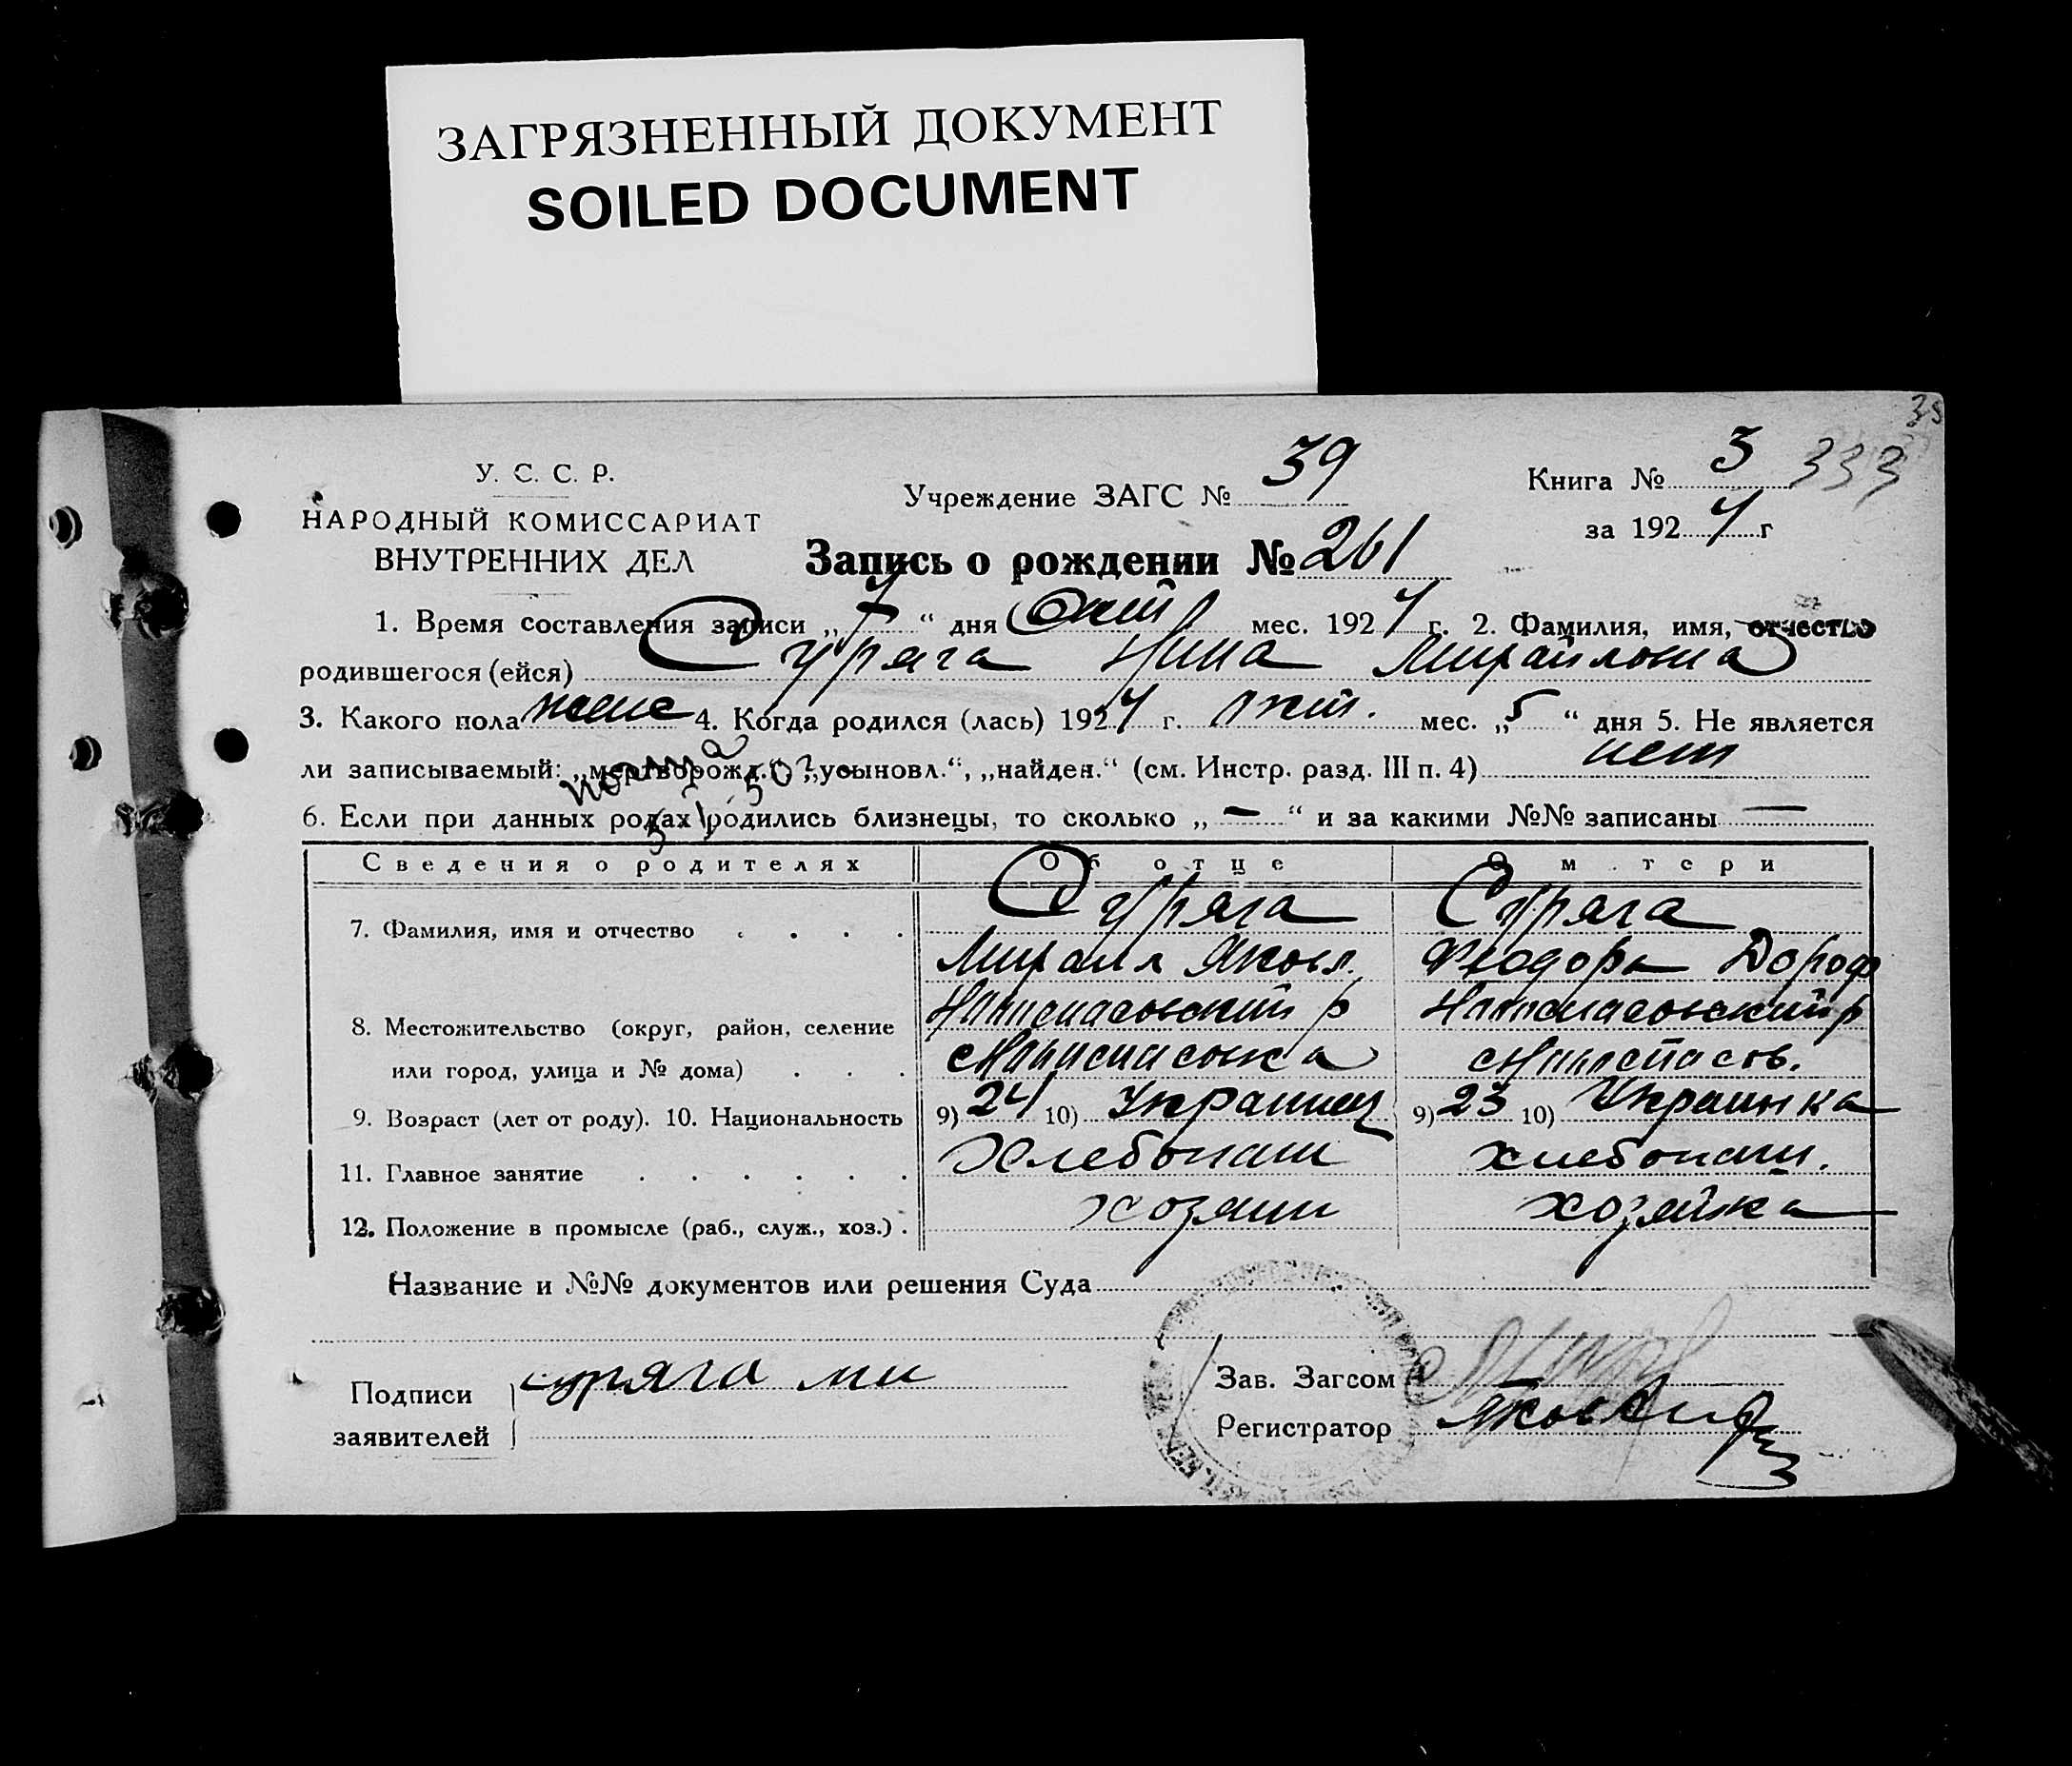 ЗАГРЯЗНЕННЫЙ ДОКУМЕНТ
SOILED DOCUMENT
У. С. С. Р.
НАРОДНЫЙ КОМИССАРИАТ
ВНУТРЕННИХ ДЕЛ
Учреждение ЗАГС № 39
Книга № 3 333
за 192 г
Запись о рождении № 261
1. Время составления записи „ 7 “ дня Окт мес. 192 г. 2. Фамилия, имя, отчество
родившегося (ейся) Суряга Нина Михайловна
3. Какого пола женс 4. Когда родился (лась) 192 г. окт. мес. „ 5 “ дня 5. Не является
ли записываемый: „мертворожд.“, „усыновл.“, „найден.“ (см. Инстр. разд. III п. 4) нет
6. Если при данных родах родились близнецы, то сколько „ — “ и за какими №№ записаны —
Сведения о родителях Об отце О м тери
7. Фамилия, имя и отчество Суряга Суряга
Михаил Яковл. Феодора Дороф
8. Местожительство (округ, район, селение
или город, улица и № дома)
9. Возраст (лет от роду). 10. Национальность 9) 24 10) Украинец 9) 23 10) Украинка
11. Главное занятие Хлебопаш хлебопаш.
12. Положение в промысле (раб., служ., хоз.) хозяин хозяйка
Название и №№ документов или решения Суда
Подписи суряга ми
заявителей
Зав. Загсом
Регистратор